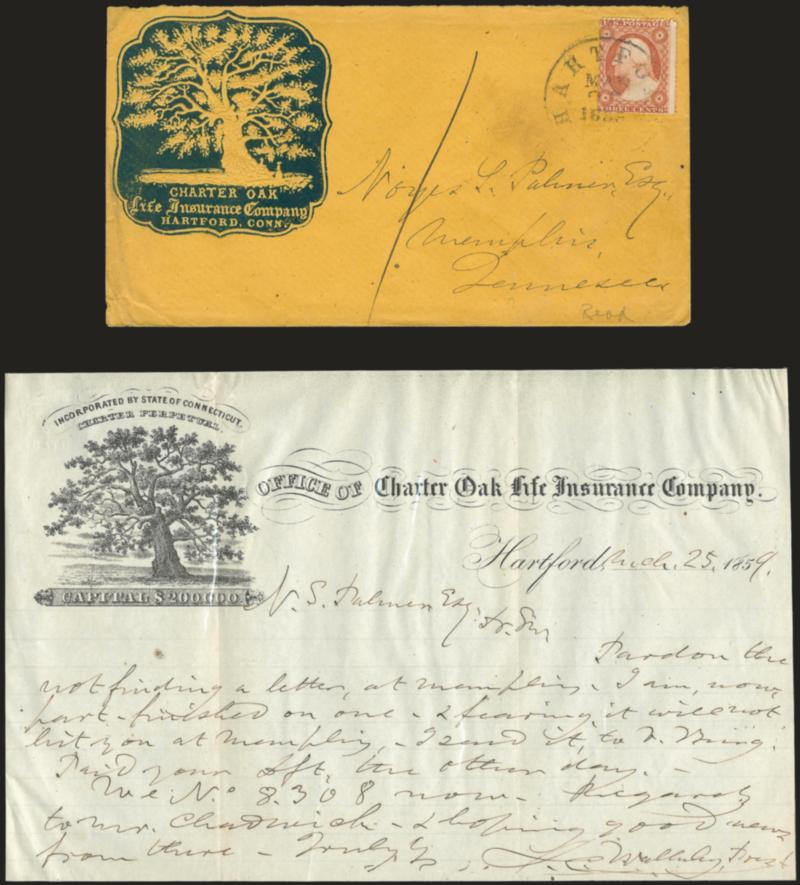 CHARTER OAK
Life Insurance Company
HARTFORD, CONN.
HARTFO C
U.S. POSTAGE
THREE CENTS
Noyes S. Palmer, Esq.
Memphis,
Tennessee
Read
INCORPORATED BY STATE OF CONNECTICUT.
CHARTER PERPETUAL.
CAPITAL $200,000.
OFFICE OF Charter Oak Life Insurance Company.
Hartford, Mch. 25, 1859.
N. S. Palmer Esq.
Dr. Sir,
Pardon the
not finding a letter, at Memphis. I am, now,
part-finished on one - & fearing it will not
hit you at Memphis, - I send it, to N.
Paid your dft, the other day. -
We No 8.308 now - Regards
to Mr. Chadwick - & hoping good news
from there - Truly Yr, Prest